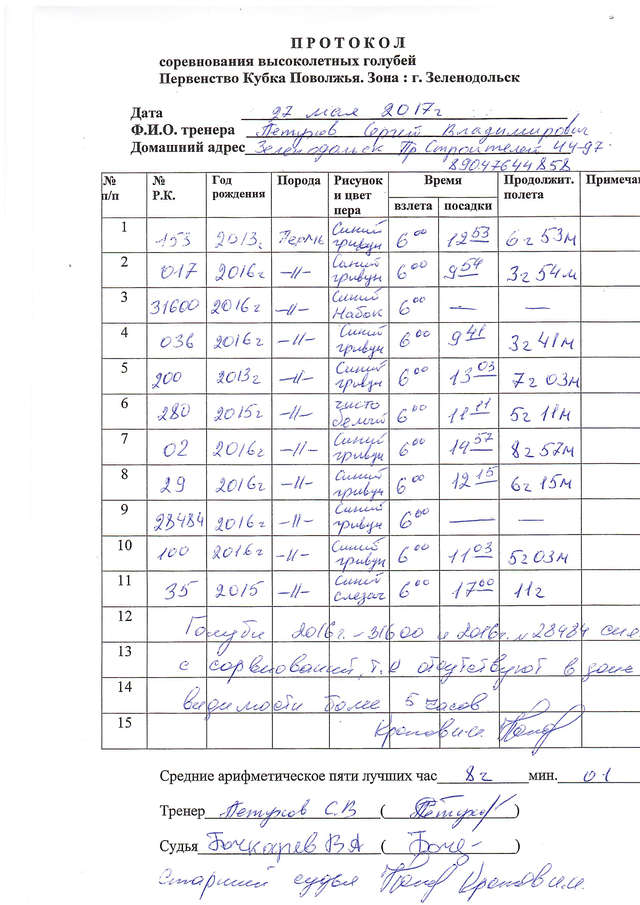 ПРОТОКОЛ
соревнования высоколетных голубей
Первенство Кубка Поволжья. Зона : г. Зеленодольск
Дата 27 мая 2017г
Ф.И.О. тренера Петухов Сергей Владимирович
Домашний адрес Зеленодольск Пр Строителей 44-97
89047644858
№ п/п № Р.К. Год рождения Порода Рисунок и цвет пера Время взлета посадки Продолжит. полета Примеча
1 153 2013г Пермь Синий гривун 6 00 12 53 6г 53м
2 017 2016г -//- Синий гривун 6 00 9 54 3г 54м
3 31600 2016г -//- Синий Набок 6 00 — —
4 036 2016г -//- Синий гривун 6 00 9 41 3г 41м
5 200 2013г -//- Синий гривун 6 00 13 03 7г 03м
6 280 2015г -//- чисто белый 6 00 11 11 5г 11м
7 02 2016г -//- Синий гривун 6 00 14 57 8г 57м
8 29 2016г -//- Синий гривун 6 00 12 15 6г 15м
9 28484 2016г -//- Синий гривун 6 00 — —
10 100 2016г -//- Синий гривун 6 00 11 03 5г 03м
11 35 2015 -//- Синий 6 00 17 00 11г
12 Голуби 2016г. - 31600 и 2016г. № 28484 сня
13 с соревнований, т.к отсутствуют в зоне
14 видимости более 5 часов
15
Средние арифметическое пяти лучших час 8г мин. 01
Тренер Петухов С.В (Петухов)
Судья Бочкарев В А (Боче-)
Старший судья